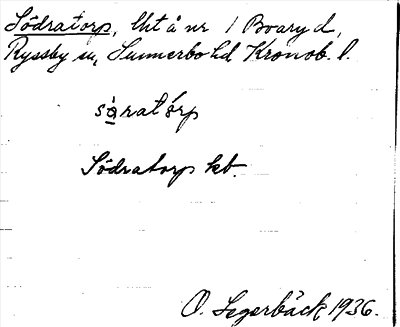 Södratorp, lht å nr 1 Bvaryd,
Ryssby sn, Sunnerbo hd Kronob. l.
sàratórp
Södratorp kb.
O. Segerbäck 1936.